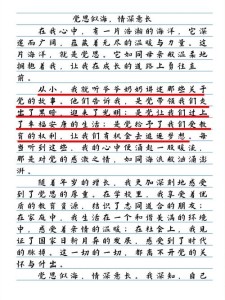 党恩似海，情深意长
在我心中，有一片浩瀚的海洋，它深
邃而广阔，蕴藏着无尽的温暖与力量。这
片海洋，就是党恩。它如同母亲般温柔地
拥抱着我，让我在成长的道路上茁壮前
行。
从小，我就听爷爷奶奶讲述那些关于
党的故事。他们告诉我，是党带领我们走
出了黑暗，迎来了光明；是党让我们过上
了幸福安康的生活；是党给予了我们受教
育的权利，让我们有机会去追逐梦想。每
当听到这些，我的心中便涌起一股股暖流，
那是对党的感激之情，如同海浪般汹涌澎
湃。
随着年岁的增长，我更加深刻地感受
到了党恩的厚重。在学校里，我享受着优
质的教育资源，结识了志同道合的朋友；
在家庭中，我生活在一个和谐美满的环境
中，感受着亲情的温暖；在社会上，我见
证了国家日新月异的发展，感受到了时代
的脉搏。这一切的一切，都离不开党的关
怀与付出。
党恩似海，情深意长。我深知，自己